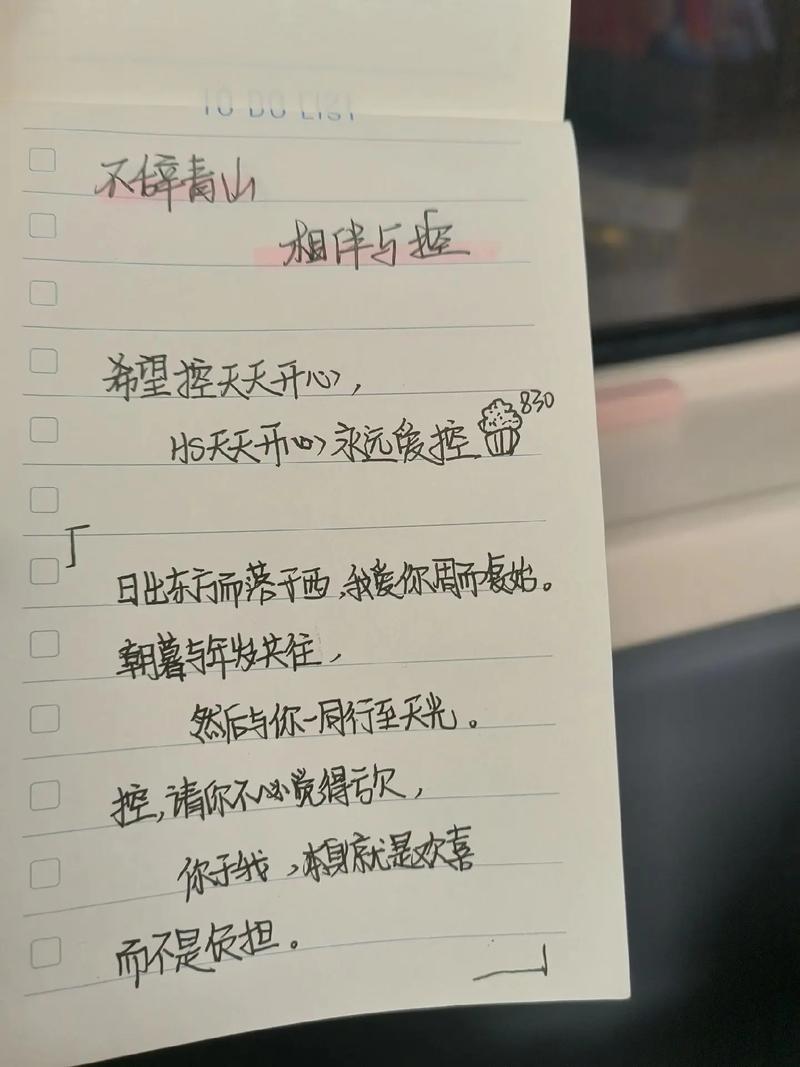 TO DO LIST
不辞青山
相伴与控
希望控天天开心,
830
HS天天开心永远爱控
「
日出东方而落于西,我爱你周而复始。
朝暮与年岁共往,
然后与你一同行至天光。
控,请你不必觉得亏欠,
你于我,本身就是欢喜
而不是负担。
」